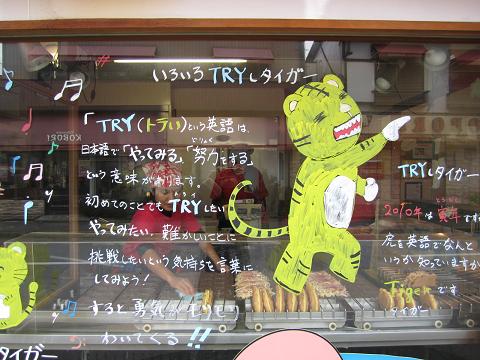 いろいろTRYしタイガー
「TRY(トライ)という英語は、
日本語で「やってみる」、「努力をする」
どりょく
という意味があります。
初めてのことでもTRYしたい
やってみたい、難かしいことに
挑戦したいという気持ちを言葉に
してみよう!
すると勇気がもりもり
わいてくる!!
TRYしタイガー
2010年は寅年です
虎を英語でなんと
いうか知っていますか
Tigerです
タイガー
KOBORI